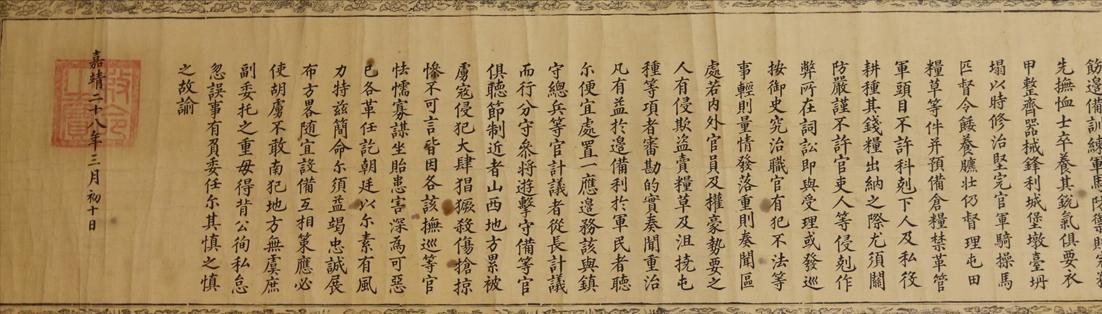 飭邊備訓練軍馬防禦賊寇務
先撫恤士卒養其銳氣俱要衣
甲整齊器械鋒利城堡墩臺坍
塌以時修治堅完官軍騎操馬
匹督令餧養臕壯仍督理屯田
糧草等件并預備倉糧禁革管
軍頭目不許科剋下人及私役
耕種其錢糧出納之際尤須關
防嚴謹不許官吏人等侵剋作
弊所在詞訟即與受理或發巡
按御史究治職官有犯不法等
事輕則量情發落重則奏聞區
處若內外官員及權豪勢要之
人有侵欺盜賣糧草及沮撓屯
種等項者審勘的實奏聞重治
凡有益於邊備利於軍民者聽
尓便宜處置一應邊務該與鎮
守總兵等官計議者從長計議
而行分守叅將遊擊守備等官
俱聽節制近者山西地方累被
虜寇侵犯大肆猖獗殺傷搶掠
慘不可言皆因各該撫巡等官
怯懦寡謀坐貽患害深為可惡
已各革任訖朝廷以尓素有風
力特茲簡命尓須益竭忠誠展
布方畧隨宜設備互相策應必
使胡虜不敢南犯地方無虞庶
副委托之重毋得背公徇私怠
忽誤事有負委任尓其慎之慎
之故諭
嘉靖二十八年三月初十日